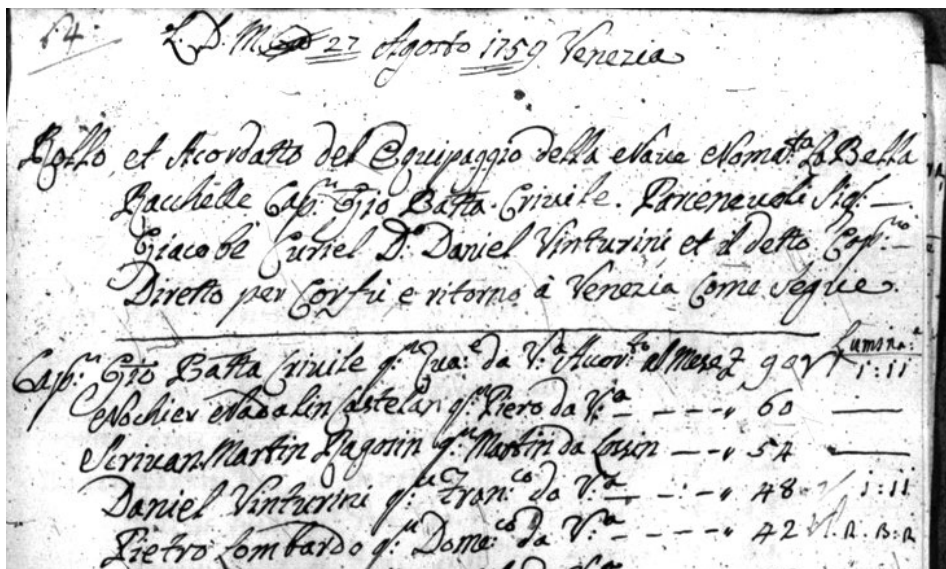 64.
L. D. M. 27 Agosto 1759 Venezia
Rollo, et Acordatto del Equipaggio della Nave Nomta. La Bella
Racchelle Capn: Gio Batta. Criuile. Parcenevoli Sigr:
Giacobe Curiel Dn: Daniel Vinturini, et il detto Capno:
Diretto per Corfù e ritorno à Venezia Come Segue.
Lumina:
Capn: Gio Batta Criuile qm: da Va: Acorto al Mese 90 1:11
Nochier Nadalin Castelan qm: Piero da Va: - - - - " 60
Scrivan Martin Ragosin qm: Martin da Losin - - " 54
Daniel Vinturini qm: Franco: da Va: - - - " 48 1:11
Pietro Lombardo qm: Domco: da Va: - - - - " 42 R. B: R